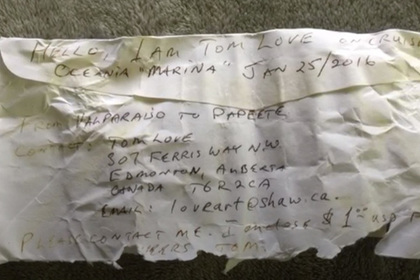 HELLO, I AM TOM LOVE ON CRUI
OCEANIA "MARINA" JAN 25/2016
FROM VALPARAISO TO PAPEETE
CONTACT: TOM LOVE
307 FERRIS WAY N.W.
EDMONTON, ALBERTA
CANADA T6R2CA
EMAIL: loveart@shaw.ca.
PLEASE CONTACT ME. I enclose $1⁰⁰ USD F
TOM.